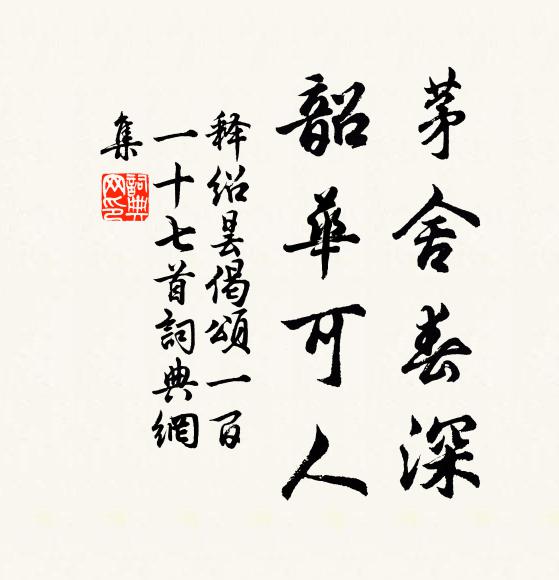 茅舍春深
韶華可人
释绍昙偈頌一百
一十七首詞典網
集
詞典
网印